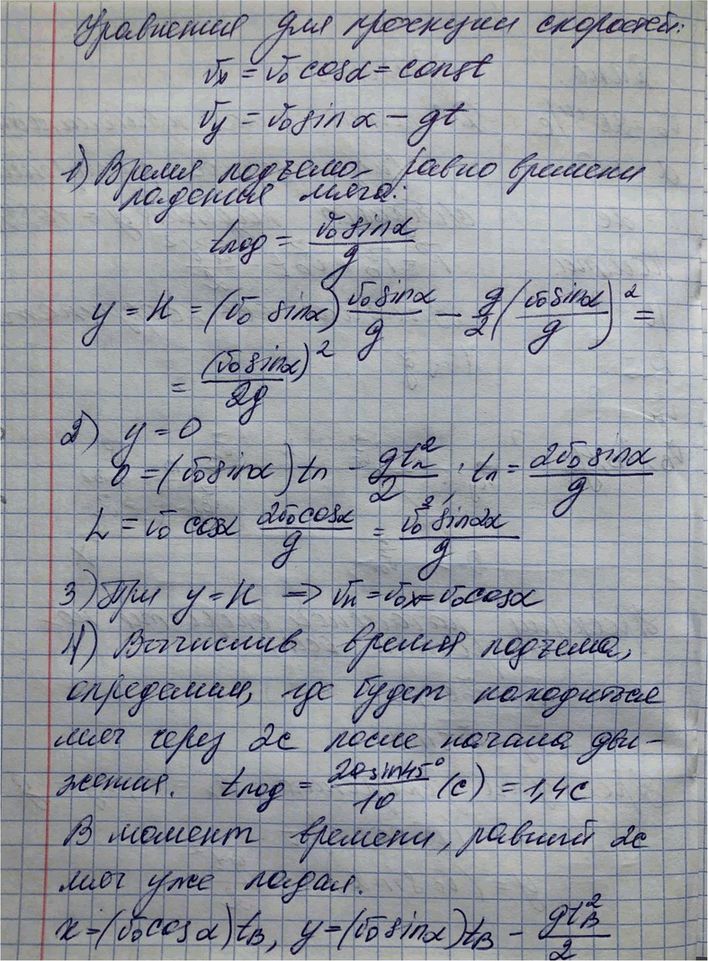 Уравнения для проекции скоростей:
υx = υ0 cosα = const
υy = υ0 sinα − gt
1) Время подъёма равно времени
падения мяча:
tпод = υ0 sinα / g
y = H = (υ0 sinα) υ0 sinα / g − g/2 (υ0 sinα / g)² =
= (υ0 sinα)² / 2g
2) y = 0
0 = (υ0 sinα) tп − gtп² / 2 ; tп = 2υ0 sinα / g
L = υ0 cosα 2υ0 cosα / g = υ0² sin2α / g
3) При y = H => υн = υ0x = υ0 cosα
4) Вычислив время подъема,
определим, где будет находиться
мяч через 2с после начала дви-
жения. tпод = 20 sin45° / 10 (с) = 1,4с
В момент времени, равный 2с
мяч уже падал.
x = (υ0 cosα) tв, y = (υ0 sinα) tв − gtв² / 2